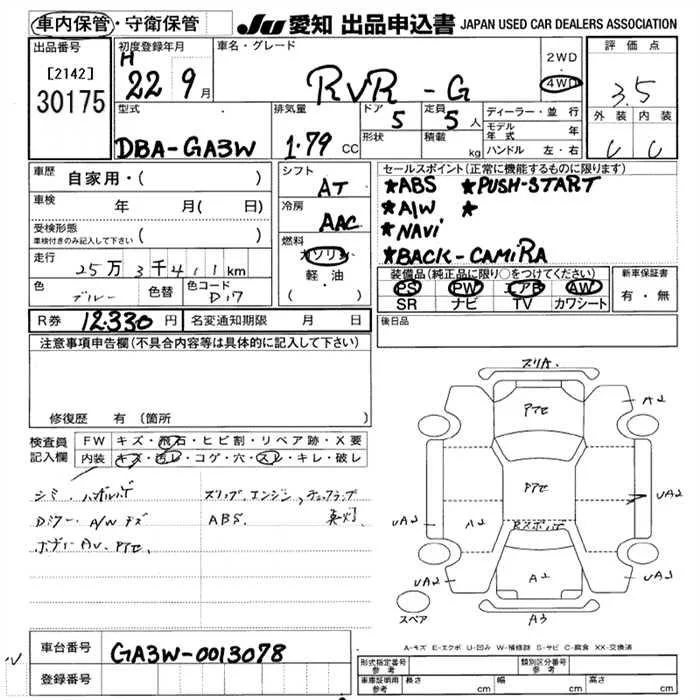 車内保管・守衛保管
JU 愛知 出品申込書 JAPAN USED CAR DEALERS ASSOCIATION
出品番号
[2142]
30175
初度登録年月
H 22 9月
車名・グレード
RVR - G
2WD
4WD
評価点
3.5
外装 内装
C C
型式
DBA-GA3W
排気量
1.79 CC
ドア 5
形状
定員 5人
積載 kg
ディーラー・並行
モデル年式 年
ハンドル 左・右
車歴 自家用・( )
車検 年 月( 日)
受検形態
車検付きのみ記入して下さい ( )
走行 25万3千411km
色 ブルー 色替 色コード D17
シフト AT
冷房 AAC
燃料
ガソリン
軽油
( )
セールスポイント(正常に機能するものに限ります)
★ABS ★PUSH-START
★A/W ★
★NAVi
★BACK-CAMiRA
装備品(純正品に限り○をつけてください)
PS PW エアB AW
SR ナビ TV カワシート
新車保証書
有・無
R券 12.330円 名変通知期限 月 日
後日品
注意事項申告欄(不具合内容等は具体的に記入して下さい)
修復歴 有 (箇所 )
検査員記入欄
FW キズ・飛石・ヒビ割・リペア跡・X要
内装 キズ・汚レ・コゲ・穴・スレ・キレ・破レ
A/Wキズ
スリップ、エンジン、チェックランプ
ABS.
スリA.
アセ
A2
アセ
UA2
UA2
A2
UA2
A2
UA2
A3
スペア
A-キズ E-エクボ U-凹み W-補修跡 S-サビ C-腐食 XX-交換済
車台番号 GA3W-0013078
登録番号
形式指定番号 参考
類別区分番号 参考
車庫証明用 参考 長さ cm 幅 cm 高さ cm